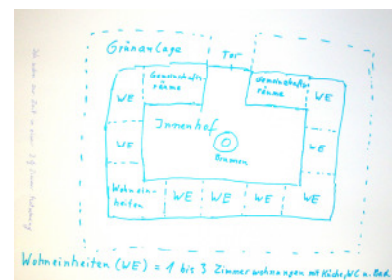 Grünanlage
Tor
Gemeinschafts-
räume
Gemeinschafts-
räume
WE
WE
Innenhof
WE
WE
Brunnen
WE
WE
Wohnein-
heiten
WE
WE
WE
WE
Wohneinheiten (WE) = 1 bis 3 Zimmerwohnungen mit Küche, WC u. Bad